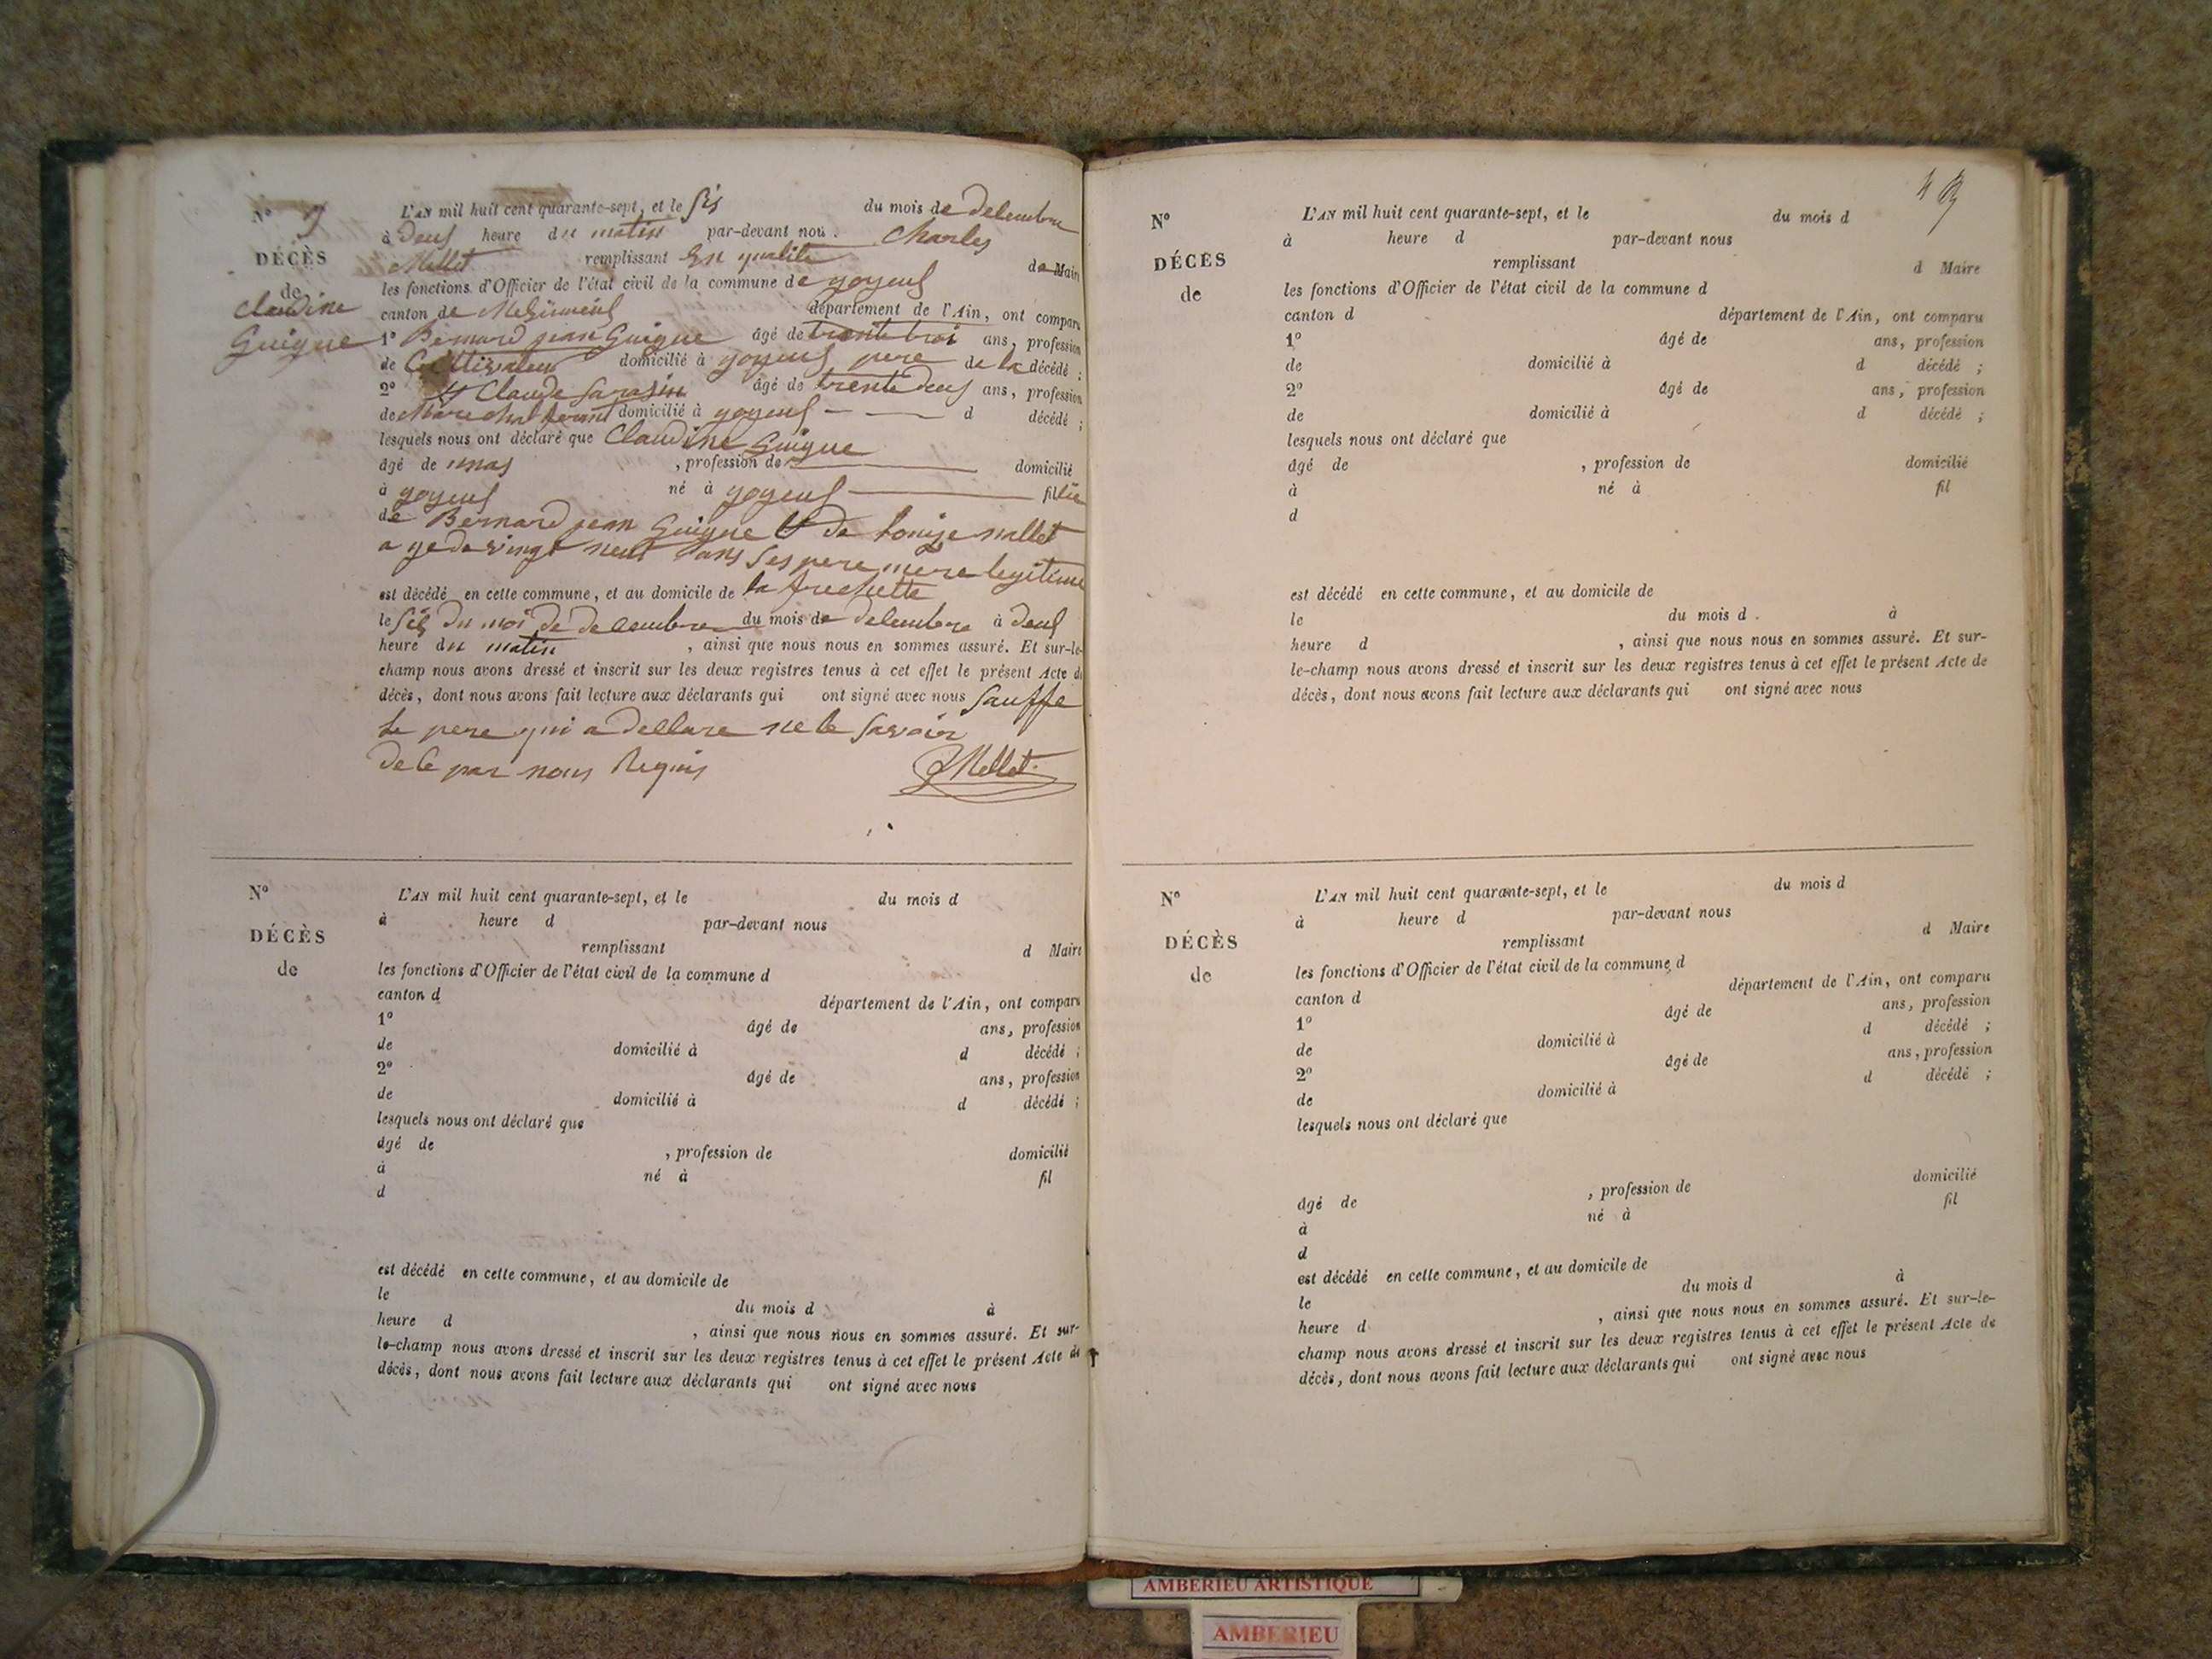 N° 9
DÉCÈS
de
Claudine
Guigue
L'AN mil huit cent quarante-sept, et le Sis du mois de delembre
à Deus heure du matin par-devant nou. Charles
Mellet remplissant En qualite de Maire
les fonctions d'Officier de l'état civil de la commune de goyeus
canton de département de l'Ain, ont comparu
1° Bernard jean Guigue âgé de trente troi ans, profession
de Cultivateur domicilié à goyeus pere de la décédé ;
2° Claude Sarasin âgé de trente deus ans, profession
de Marechal ferant domicilié à goyeus d décédé ;
lesquels nous ont déclaré que Claudine Guigue
âgé de , profession de domicilié
à goyeus né à goyeus fillie
de Bernard jean Guigue et de Louise mellet
a ge de vingt neuf ans Ses pere mere legitime
est décédé en cette commune, et au domicile de la
le Sis du moi de decembre du mois de delembre à deus
heure du matin , ainsi que nous nous en sommes assuré. Et sur-le-
champ nous avons dressé et inscrit sur les deux registres tenus à cet effet le présent Acte de
décès, dont nous avons fait lecture aux déclarants qui ont signé avec nous Sauffe
Le pere qui a dellare ne le Savoir
de Ce par nous Requis
Mellet
N°
DÉCÈS
de
L'AN mil huit cent quarante-sept, et le du mois d
à heure d par-devant nous
remplissant d Maire
les fonctions d'Officier de l'état civil de la commune d
canton d département de l'Ain, ont comparu
1° âgé de ans, profession
de domicilié à d décédé ;
2° âgé de ans, profession
de domicilié à d décédé ;
lesquels nous ont déclaré que
âgé de , profession de domicilié
à né à fil
d
est décédé en cette commune, et au domicile de
le du mois d à
heure d , ainsi que nous nous en sommes assuré. Et sur-
le-champ nous avons dressé et inscrit sur les deux registres tenus à cet effet le présent Acte de
décès, dont nous avons fait lecture aux déclarants qui ont signé avec nous
N°
DÉCÈS
de
L'AN mil huit cent quarante-sept, et le du mois d
à heure d par-devant nous
remplissant d Maire
les fonctions d'Officier de l'état civil de la commune d
canton d département de l'Ain, ont comparu
1° âgé de ans, profession
de domicilié à d décédé ;
2° âgé de ans, profession
de domicilié à d décédé ;
lesquels nous ont déclaré que
âgé de , profession de domicilié
à né à fil
d
est décédé en cette commune, et au domicile de
le du mois d à
heure d , ainsi que nous nous en sommes assuré. Et sur-
le-champ nous avons dressé et inscrit sur les deux registres tenus à cet effet le présent Acte de
décès, dont nous avons fait lecture aux déclarants qui ont signé avec nous
N°
DÉCÈS
de
L'AN mil huit cent quarante-sept, et le du mois d
à heure d par-devant nous
remplissant d Maire
les fonctions d'Officier de l'état civil de la commune d
canton d département de l'Ain, ont comparu
1° âgé de ans, profession
de domicilié à d décédé ;
2° âgé de ans, profession
de domicilié à d décédé ;
lesquels nous ont déclaré que
âgé de , profession de domicilié
à né à fil
d
est décédé en cette commune, et au domicile de
le du mois d à
heure d , ainsi que nous nous en sommes assuré. Et sur-le-
champ nous avons dressé et inscrit sur les deux registres tenus à cet effet le présent Acte de
décès, dont nous avons fait lecture aux déclarants qui ont signé avec nous
AMBERIEU ARTISTIQUE
AMBERIEU